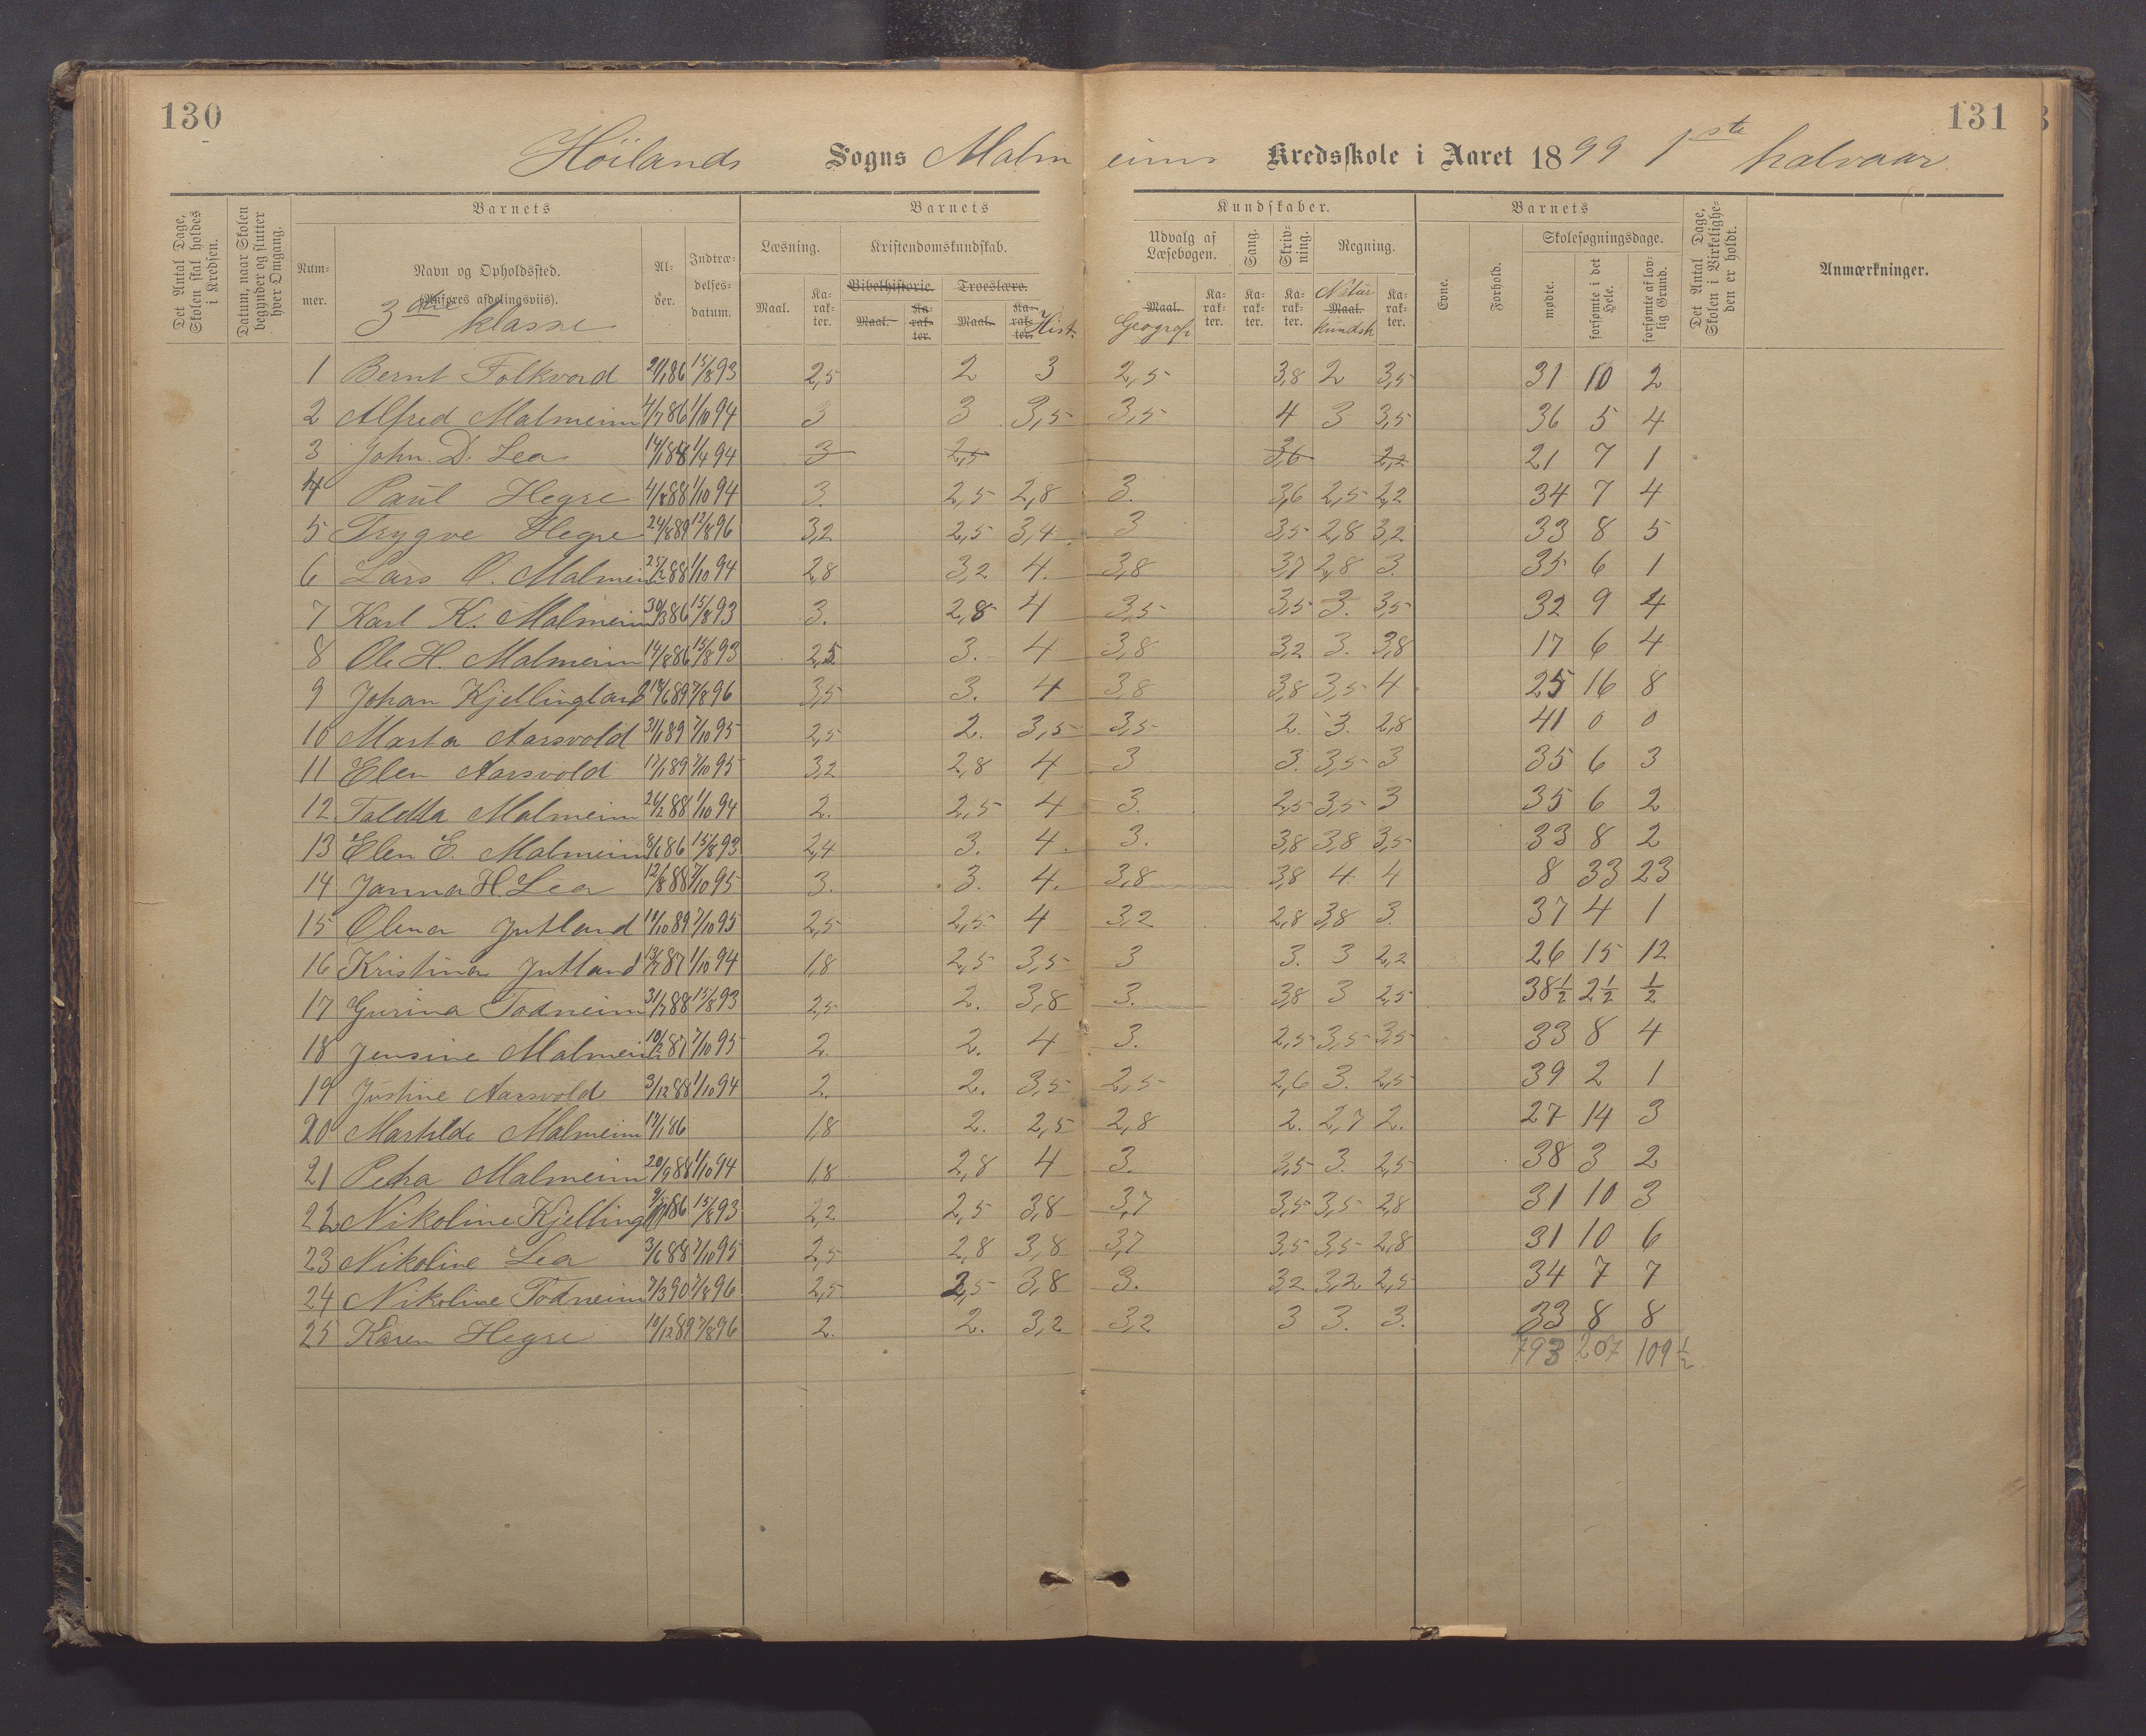 130
131
Höilands Sogns Malmeims Kredsskole i Aaret 1899 1ste halvaar.
Det Antal Dage, Skolen skal holdes i Kredsen.
Datum, naar Skolen begynder og slutter hver Omgang.
Barnets
Barnets
Kundskaber.
Barnets
Det Antal Dage, Skolen i Virkeligheden er holdt.
Anmærkninger.
Nummer.
Navn og Opholdssted. (Anføres afdelingsviis).
3die klasse
Alder.
Indtrædelsesdatum.
Læsning.
Kristendomskundskab.
Udvalg af Læsebogen.
Sang.
Skrivning.
Regning.
Evne.
Forhold.
Skolesøgningsdage.
Maal.
Karakter.
Bibelhistorie.
Troeslære.
Maal. Karakter. Maal. Karakter. Hist.
Maal. Geografi
Karakter.
Karakter.
Karakter.
Natur Maal. kundsk
Karakter.
mødte.
forsømte i det Hele.
forsømte af lovlig Grund.
1 Bernt Folkvord 21/1 86 15/8 93 2,5 2 3 2,5 3,8 2 3,5 31 10 2
2 Alfred Malmeim 4/7 86 1/10 94 3 3 3,5 3,5 4 3 3,5 36 5 4
3 John. D. Lea 14/1 88 1/4 94 3 2,5 3,6 2,2 21 7 1
4 Paul Hegre 4/8 88 1/10 94 3. 2,5 2,8 3. 3,6 2,5 2,2 34 7 4
5 Trygve Hegre 24/8 89 12/8 96 3,2 2,5 3,4 3 3,5 2,8 3,2 33 8 5
6 Lars O. Malmeim 25/12 88 1/10 94 2,8 3,2 4. 3,8 3,7 2,8 3. 35 6 1
7 Karl K. Malmeim 30/3 86 15/8 93 3. 2,8 4 3,5 3,5 3. 3,5 32 9 4
8 Ole H. Malmeim 14/8 86 15/8 93 2,5 3. 4 3,8 3,2 3. 3,8 17 6 4
9 Johan Kjellingland 18/6 89 7/8 96 3,5 3. 4 3,8 3,8 3,5 4 25 16 8
10 Marta Aarsvold 31/1 89 7/10 95 2,5 2. 3,5 3,5 2. 3. 2,8 41 0 0
11 Elen Aarsvold 17/1 89 7/10 95 3,2 2,8 4 3 3. 3,5 3 35 6 3
12 Taletta Malmeim 24/2 88 1/10 94 2. 2,5 4 3. 2,5 3,5 3 35 6 2
13 Elen E. Malmeim 8/6 86 15/8 93 2,4 3. 4. 3. 3,8 3,8 3,5 33 8 2
14 Janna H. Lea 12/8 88 7/10 95 3. 3. 4. 3,8 3,8 4 4 8 33 23
15 Olena Jutland 19/10 89 7/10 95 2,5 2,5 4 3,2 2,8 3,8 3. 37 4 1
16 Kristina Jutland 13/7 87 1/10 94 1,8 2,5 3,5 3 3. 3 2,2 26 15 12
17 Gurina Todneim 31/7 88 15/8 93 2,5 2. 3,8 3. 3,8 3 2,5 38½ 2½ ½
18 Jensine Malmeim 10/12 87 7/10 95 2. 2. 4 3. 2,5 3,5 3,5 33 8 4
19 Justine Aarsvold 3/12 88 1/10 94 2. 2. 3,5 2,5 2,6 3. 2,5 39 2 1
20 Martilde Malmeim 17/1 86 1,8 2. 2,5 2,8 2. 2,7 2. 27 14 3
21 Petra Malmeim 20/9 88 1/10 94 1,8 2,8 4 3. 3,5 3. 2,5 38 3 2
22 Nikoline Kjellingl 9/5 86 15/8 93 2,2 2,5 3,8 3,7 3,5 3,5 2,8 31 10 3
23 Nikoline Lea 3/6 88 7/10 95 2,5 2,8 3,8 3,7 3,5 3,5 2,8 31 10 6
24 Nikoline Todneim 7/3 90 7/8 96 2,5 2,5 3,8 3. 3,2 3,2 2,5 34 7 7
25 Karen Hegre 10/12 89 7/8 96 2. 2. 3,2 3,2 3 3. 3. 33 8 8
793 207 109½